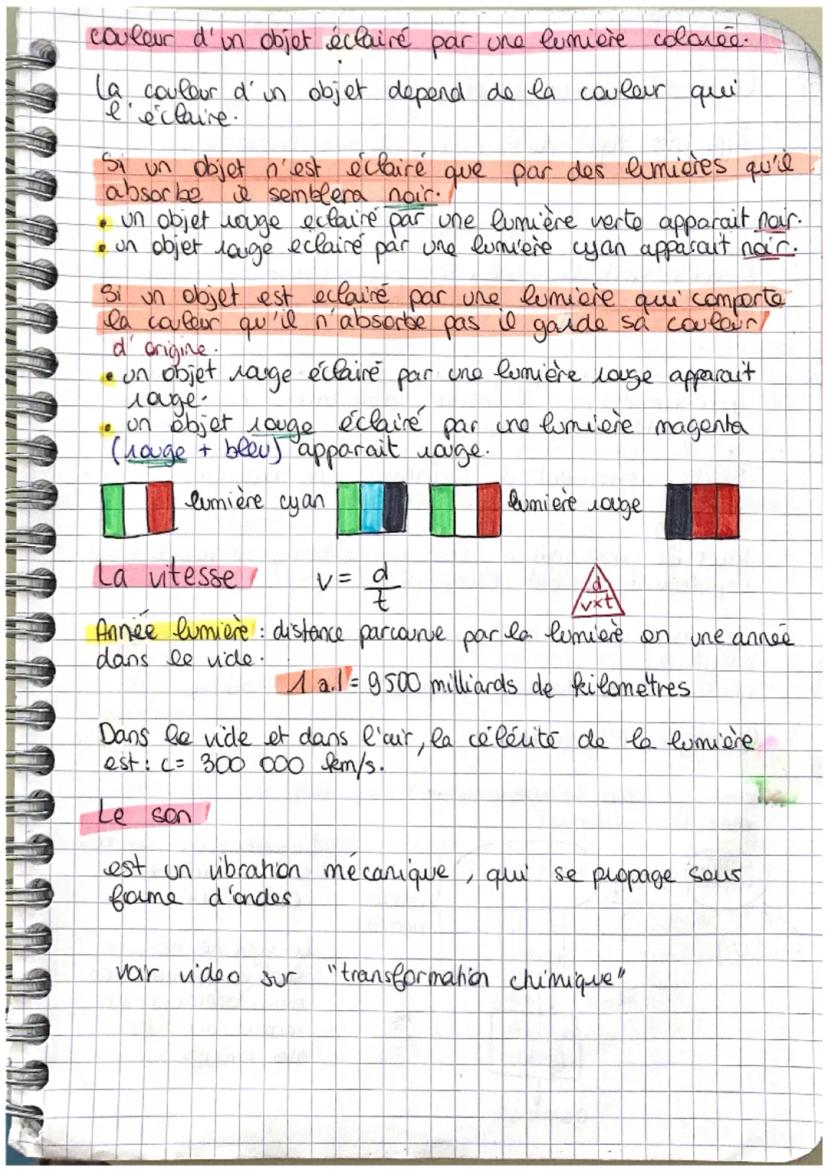 couleur d'un objet éclairé par une lumière colorée.
La couleur d'un objet depend de la couleur qui
l'éclaire.
Si un objet n'est éclairé que par des lumieres qu'il
absorbe il semblera noir.
• un objet rouge eclairé par une lumière verte apparait noir.
• un objet rouge eclairé par une lumiere cyan apparait noir.
Si un objet est eclairé par une lumiere qui comporte
la couleur qu'il n'absorbe pas il garde sa couleur
d'origine.
• un objet rouge éclairé par une lumière rouge apparait
rouge.
• un objet rouge éclairé par une lumiere magenta
(rouge + bleu) apparait rouge.
lumière cyan lumiere rouge
La vitesse v = d/t d
v×t
Année lumière : distance parcourue par la lumiere en une année
dans le vide.
1 a.l = 9500 milliards de kilometres
Dans le vide et dans l'air, la célérité de la lumière
est : c= 300 000 km/s.
Le son
est un vibration mécanique, qui se propage sous
forme d'ondes
voir video sur "transformation chimique"